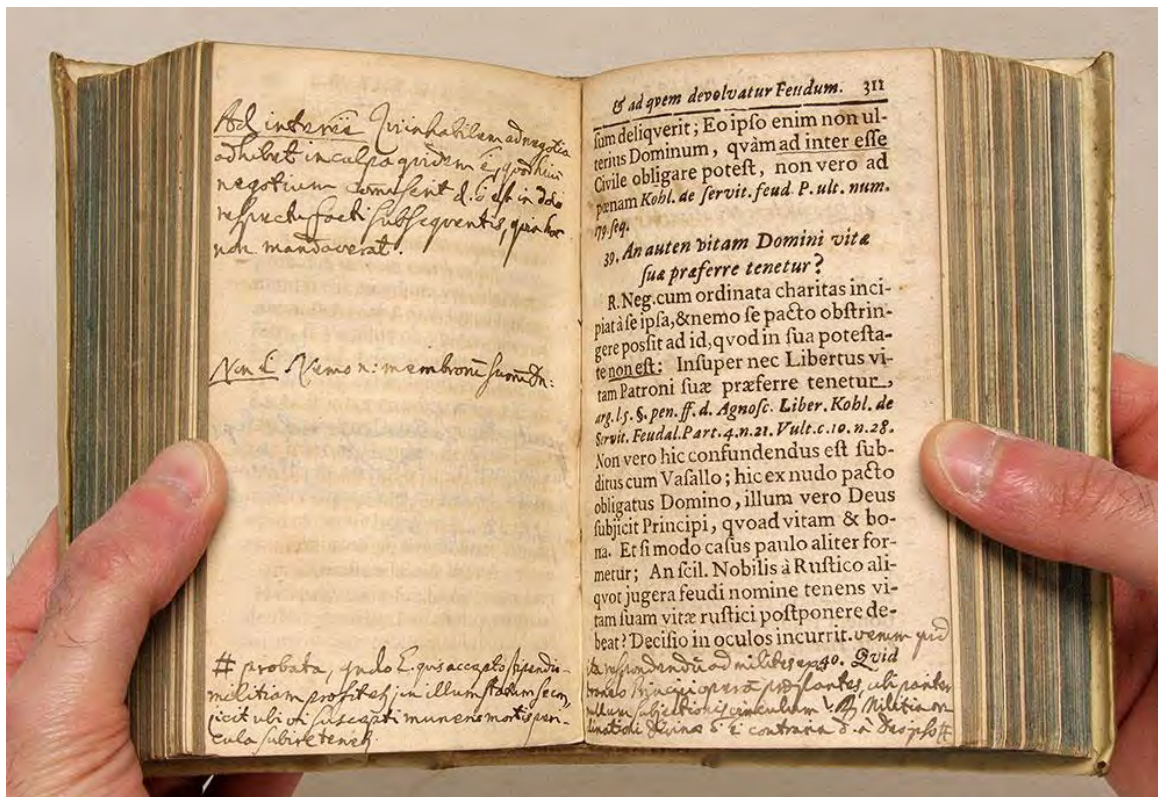 Ad interesse Qui inhabilem ad negotia
adhibet in culpa quidem ē, quod huic
negotium commiserit
respectu facti subsequentis, quia hoc
non mandaverat.
Non E. Nemo n: membrorū suorū Dn:
# probata, qndo E. quis accepto stipendio
militiam profitetr, in illum statum se con,
jicit ubi vi suscepti muneris mortis peri-
cula subire tenetr.
& ad qvem devolvatur Feudum. 311
ſum deliqverit; Eo ipſo enim non ul-
terius Dominum, qvàm ad inter eſſe
Civile obligare poteſt, non vero ad
pœnam Kohl. de ſervit. feud. P. ult. num.
79. ſeq.
39. An auten vitam Domini vitæ
ſuæ præferre tenetur?
R. Neg. cum ordinata charitas inci-
piat à ſe ipſa, & nemo ſe pacto obſtrin-
gere poſſit ad id, qvod in ſua poteſta-
te non eſt: Inſuper nec Libertus vi-
tam Patroni ſuæ præferre tenetur,
arg. l. 5. §. pen. ff. d. Agnoſc. Liber. Kohl. de
Servit. Feudal. Part. 4. n. 21. Vult. c. 10. n. 28.
Non vero hic confundendus eſt ſub-
ditus cum Vaſallo; hic ex nudo pacto
obligatus Domino, illum vero Deus
ſubjicit Principi, qvoad vitam & bo-
na. Et ſi modo caſus paulo aliter for-
metur; An ſcil. Nobilis à Ruſtico ali-
qvot jugera feudi nomine tenens vi-
tam ſuam vitæ ruſtici poſtponere de-
beat? Deciſio in oculos incurrit. verum
ita respondendū ad milites 40. Quid
Principi operā præstantes, ubi
nullum subjectionis vinculum Militia or
dinationi Divinæ ē contraria à Deo ipso #